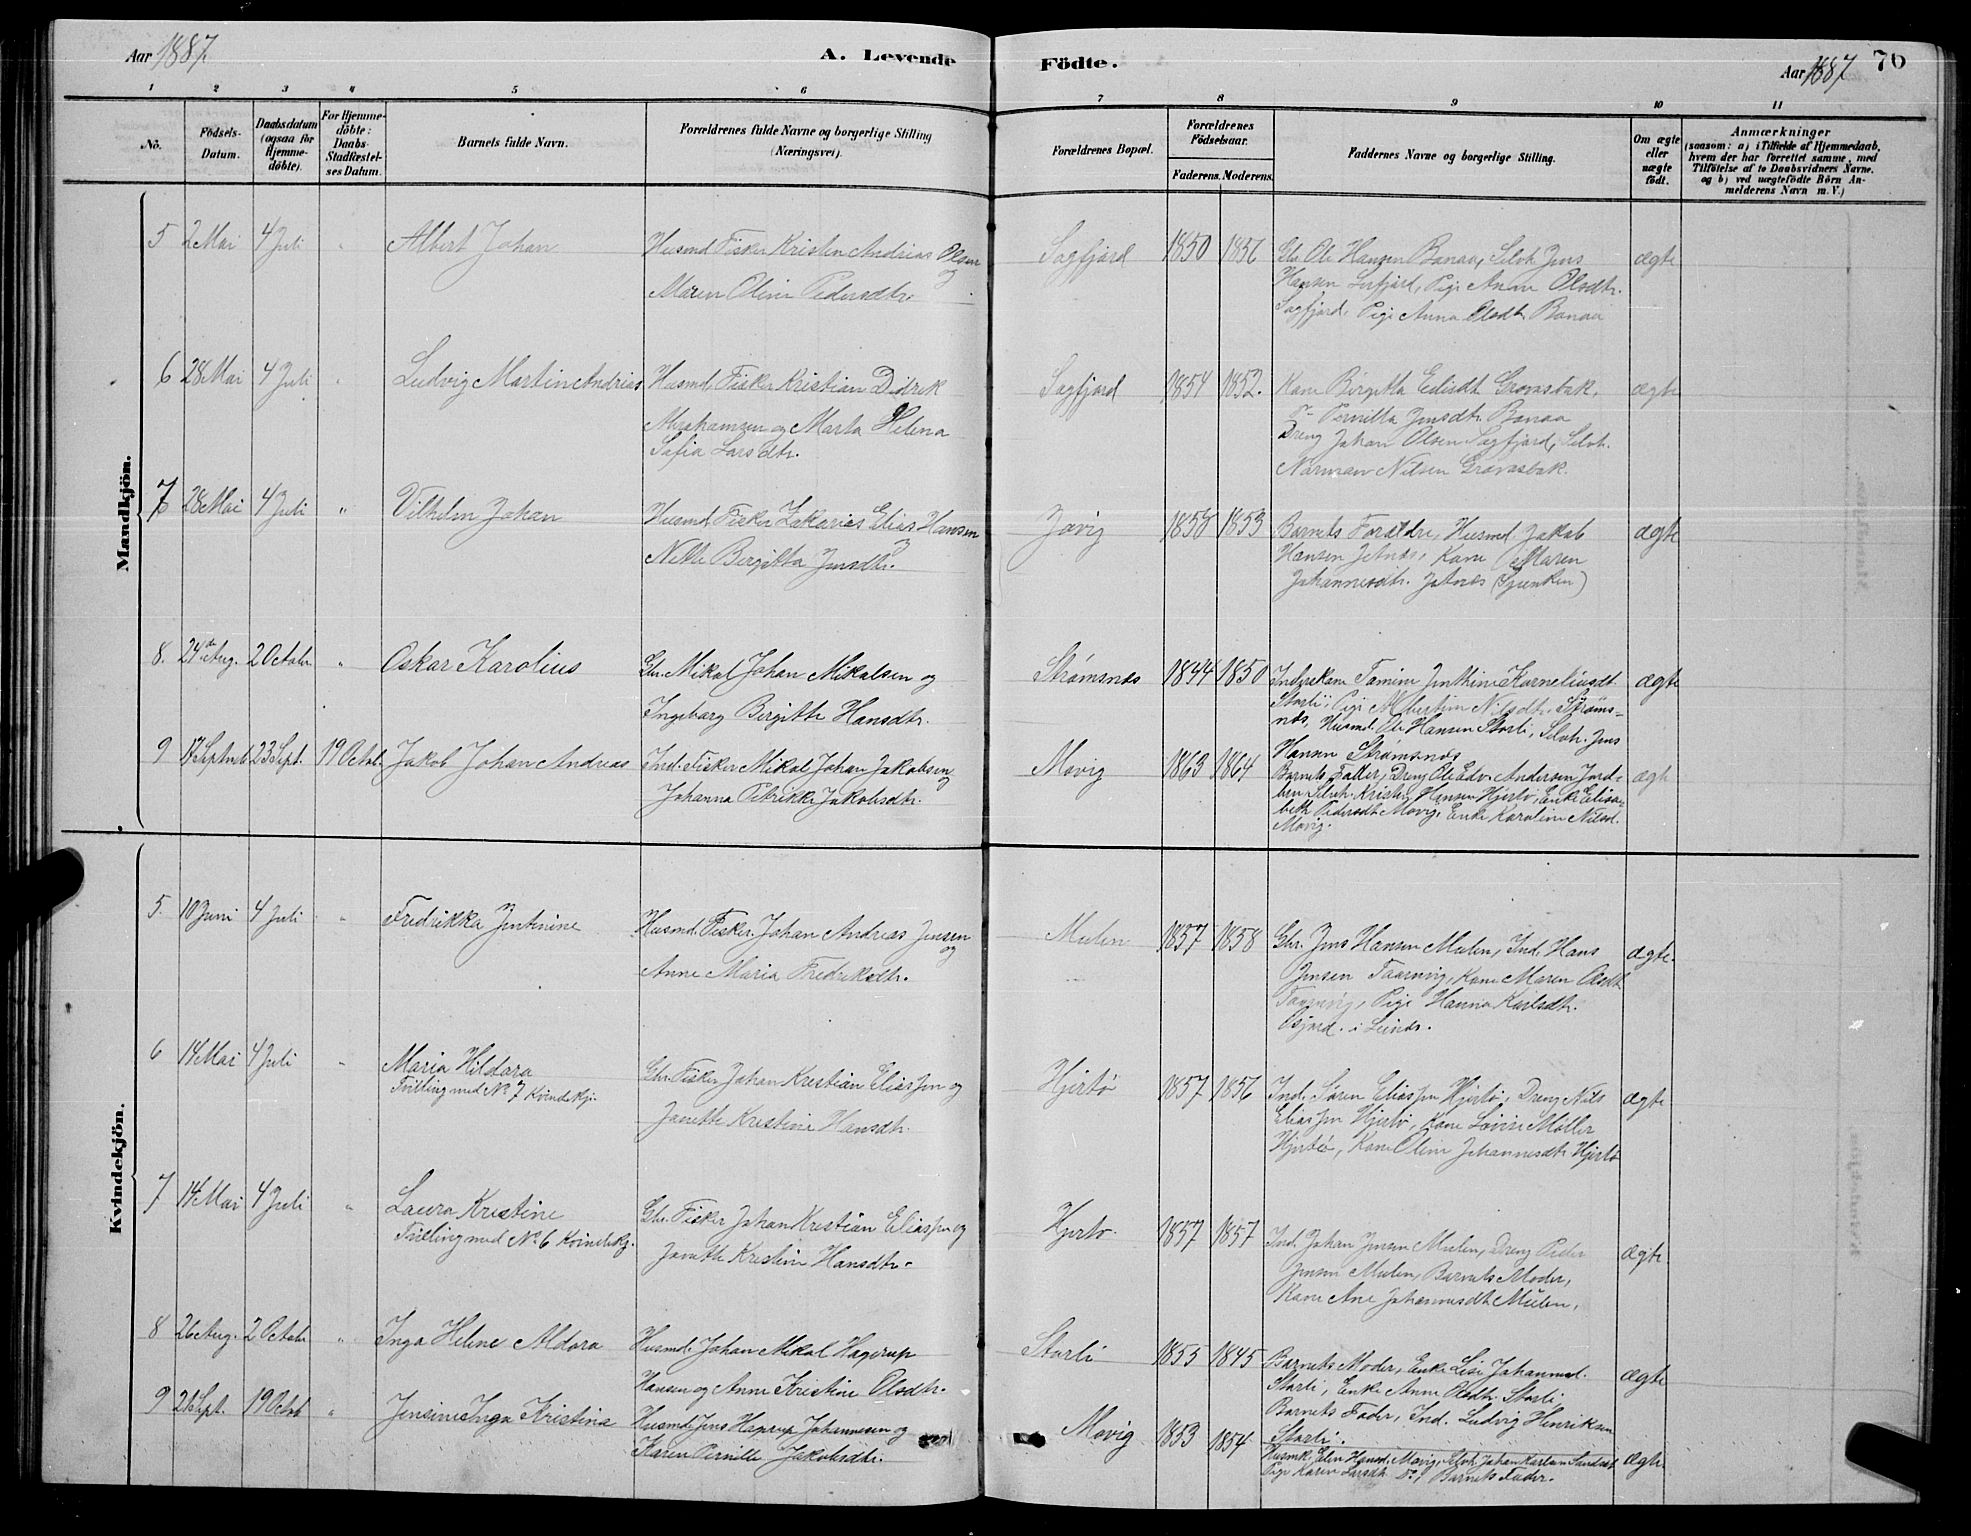 Aar 1887
A. Levende
Födte.
Aar 1887
76
1 2 3 4 5 6 7 8 9 10 11
No.
Födsels-
Datum.
Daabsdatum
(ogsaa for
Hjemme-
döbte).
For Hjemme-
döbte:
Daabs-
Stadfæstel-
ses Datum.
Barnets fulde Navn.
Forældrenes fulde Navne og borgerlige Stilling
(Næringsvei).
Forældrenes Bopæl.
Forældrenes
Födselsaar.
Faderens. Moderens.
Faddernes Navne og borgerlige Stilling.
Om ægte
eller
uægte
födt.
Anmærkninger
(saasom: a) i Tilfælde af Hjemmedaab,
hvem der har forrettet samme, med
Tilföielse af to Daabsvidners Navne.
og b) ved uægtefödte Börn An-
melderens Navn m. V.)
Mandkjön.
5 2 Mai 4 Juli " Albert Johan
Husmd. Fisker Kristen Andrias Olsen
og
Maren Oline Pedersdtr.
Sagfjord 1850 1856
Gbr. Ole Hansen Bonaa, Selvh. Jens
Hansen Sagfjord, Pige Anne Olsdtr.
Sagfjord, Pige Anna Olsdt. Bonaa
ægte
6 28 Mai 4 Juli " Ludvig Martin Andrias
Husmd. Fisker Kristian Didrik
Abrahamsen og Marta Helena
Sofia Larsdtr.
Sagfjord 1854 1852.
Kone Birgitta Edisdt. Grovasbak,
Pernilla Jensdtr. Bonaa
Dreng Johan Olsen Sagfjord, Selvh.
Normann Nilsen Grovasbak.
ægte
7 28 Mai 4 Juli " Vilhelm Johan
Husmd. Fisker Zakarias Elias Hansen
og
Nette Birgitta Jensdtr.
Zovig 1858 1853
Barnets Forældre, Husmd. Jakob
Hansen Jetnæs, Kone Maren
Johannesdtr. Jetnæs
ægte
8. 24de Aug. 2 Octobr. " Oskar Karolius
Gbr. Mikal Johan Mikalsen og
Ingeborg Birgitte Hansdtr.
Strømsnes 1844 1850
Inderskone Tamine Jenthine Korneliusdt.
Storli, Pige Albertine Nilsdtr. Strøms=
nes, Husmd. Ole Hansen Storli, Selvh. Jens
Hansen Strømsnes
ægte
9 17 Septmb 23 Sept. 19 Octob. Jakob Johan Andreas
Ind. Fisker Mikal Johan Jakobsen
og
Johanna Petrikke Jakobsdtr.
Movig 1863 1864
Barnets Fader, Dreng Ole Edv. Andersen Jord=
bru Selvh. Kristen Hansen Hjertø, Enke Elisa-
beth Pedersdt. Movig, Enke Karoline Nilsd.
Movig.
ægt
Kvindekjön.
5. 10 Juni 4 Juli " Fredrikka Jentinine
Husmd. Fisker Johan Andreas Jensen
og
Anne Maria Fredriksdtr.
Mulen 1857 1858
Gbr. Jens Hansen Mulen, Ind. Hans
Jensen Taarnvig, Kone Maren Olsdt
Taarnvig, Pige Hanna Karlsdtr.
ægte.
6 14 Mai 4 Juli " Maria Hildora
Tvilling med No 7 Kvindekj.
Gbr. Fisker Johan Kristian Eliasen og
Janette Kristine Hansdtr.
Hjertø 1857 1856
Ind. Søren Eliasen Hjertø, Dreng Nils
Eliasen Hjertø, Kone Lovise Møller
Hjertø, Kone Oline Johannesdtr Hjertø
ægte
7 14 Mai 4 Juli " Laura Kristine
Tvilling med No 6 Kvindekj.
Gbr. Fisker Johan Kristian Eliasen og
Janette Kristine Hansdtr.
Hjertø. 1857 1857
Ind. Johan Jensen Mulen, Dreng Peder
Jensen Mulen, Barnets Moder,
Kone Ane Johannesdt Mulen,
ægte
8 26 Aug. 2 Octobr " Inga Helene Aldora
Husmd. Johan Mikal Hagerup
Hansen og Anne Kristine Olsdtr.
Storli 1855 1845
Barnets Moder, Enke Lise Johannesd.
Storli, Enke Anne Olsdtr. Storli
Barnets Fader, Ind. Ludvig Henriksen
Storli.
ægte
9 21 Sept. 19 Octob " Jensine Inga Kristina
Husmd. Jens Hagrup Johannesen og
Karen Pernille Jakobsdtr.
Movig 1853 1854
Husmk. Elen Hansd. Movig, Selvh. Johan Karlsen
Pige Karen Larsdt. Do, Barnets Fader.
ægte